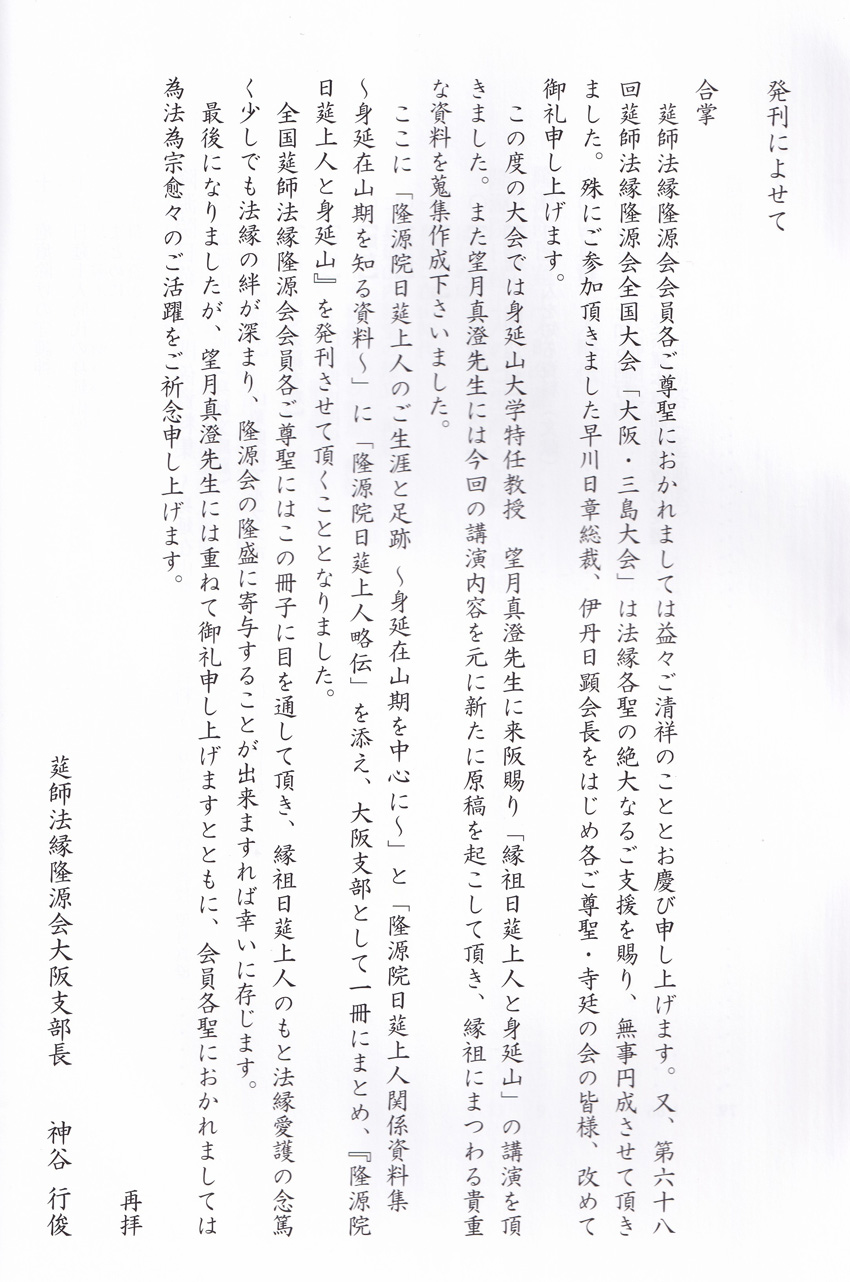 発刊によせて
合掌
莚師法縁隆源会会員各ご尊聖におかれましては益々ご清祥のこととお慶び申し上げます。又、第六十八
回莚師法縁隆源会全国大会「大阪・三島大会」は法縁各聖の絶大なるご支援を賜り、無事円成させて頂き
ました。殊にご参加頂きました早川日章総裁、伊丹日顕会長をはじめ各ご尊聖・寺廷の会の皆様、改めて
御礼申し上げます。
この度の大会では身延山大学特任教授　望月真澄先生に来阪賜り「縁祖日莚上人と身延山」の講演を頂
きました。また望月真澄先生には今回の講演内容を元に新たに原稿を起こして頂き、縁祖にまつわる貴重
な資料を蒐集作成下さいました。
ここに「隆源院日莚上人のご生涯と足跡　～身延在山期を中心に～」と「隆源院日莚上人関係資料集
～身延在山期を知る資料～」に「隆源院日莚上人略伝」を添え、大阪支部として一冊にまとめ、『隆源院
日莚上人と身延山』を発刊させて頂くこととなりました。
全国莚師法縁隆源会会員各ご尊聖にはこの冊子に目を通して頂き、縁祖日莚上人のもと法縁愛護の念篤
く少しでも法縁の絆が深まり、隆源会の隆盛に寄与することが出来ますれば幸いに存じます。
最後になりましたが、望月真澄先生には重ねて御礼申し上げますとともに、会員各聖におかれましては
為法為宗愈々のご活躍をご祈念申し上げます。
再拝
莚師法縁隆源会大阪支部長　神谷　行俊